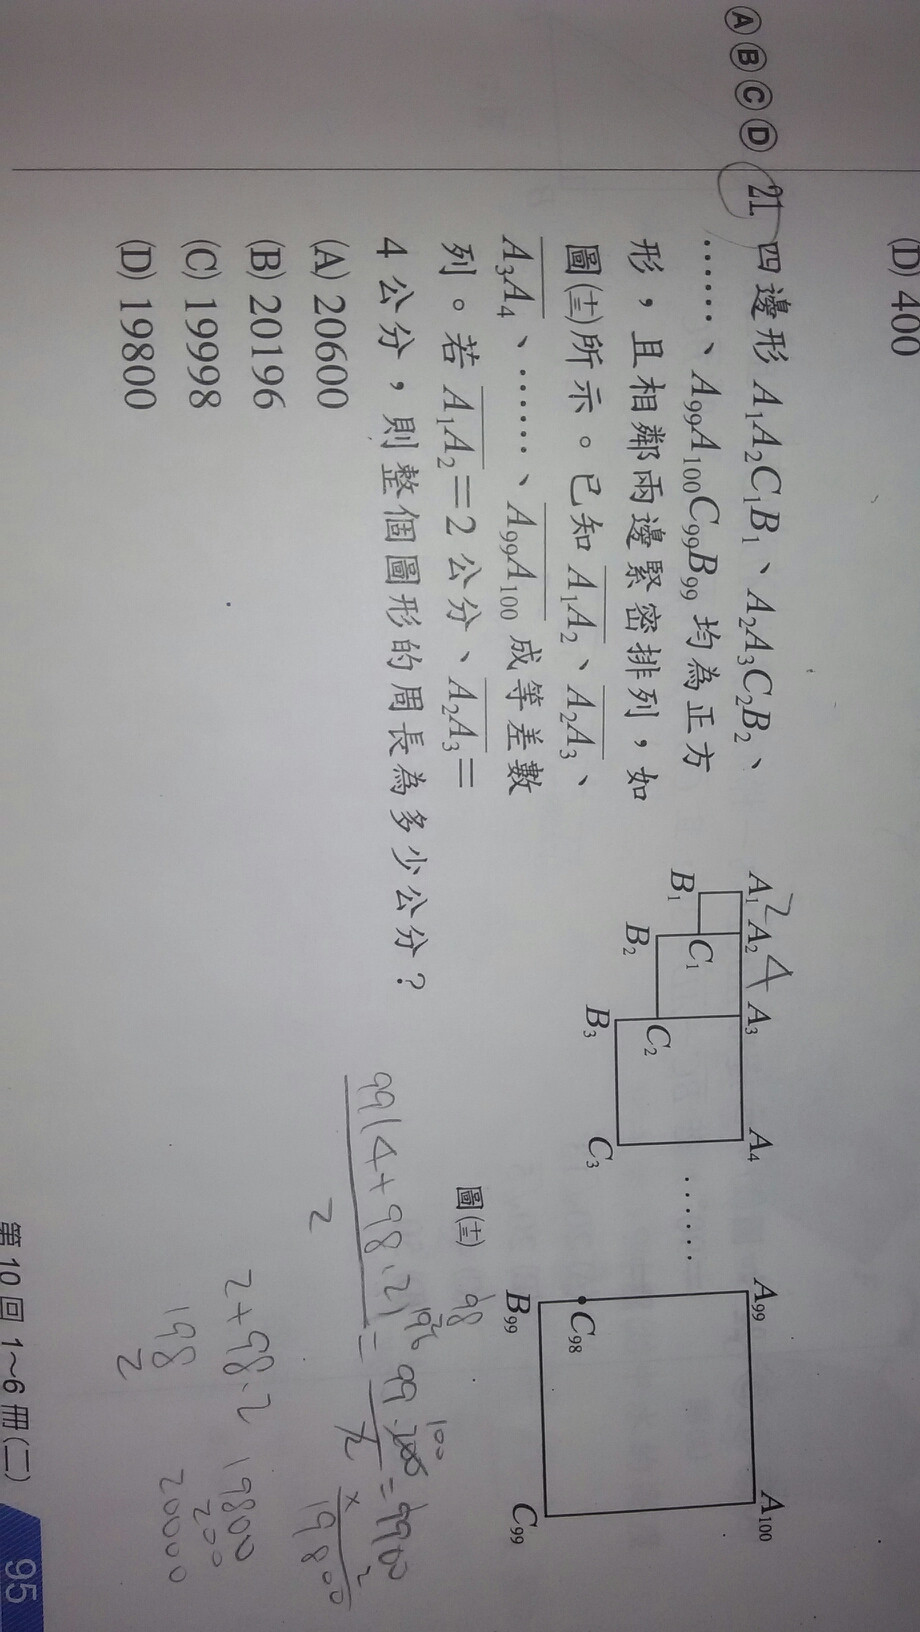 (D) 400
Ⓐ Ⓑ Ⓒ Ⓓ 21. 四邊形 A₁A₂C₁B₁、A₂A₃C₂B₂、
……、A₉₉A₁₀₀C₉₉B₉₉ 均為正方
形,且相鄰兩邊緊密排列,如
圖(十三)所示。已知 A₁A₂、A₂A₃、
A₃A₄、……、A₉₉A₁₀₀ 成等差數
列。若 A₁A₂=2 公分、A₂A₃=
4 公分,則整個圖形的周長為多少公分?
(A) 20600
(B) 20196
(C) 19998
(D) 19800
A₁ A₂ A₃ A₄ …… A₉₉ A₁₀₀
2 4
B₁ C₁
B₂ C₂
B₃ C₃
C₉₈
B₉₉ C₉₉
圖(十三)
98
196
99(4+98.2)
2
= 99.200
2
100
= 9900
× 2
19800
2+98.2
198
2
19800
200
20000
第 10 回 1~6 冊(二) 95